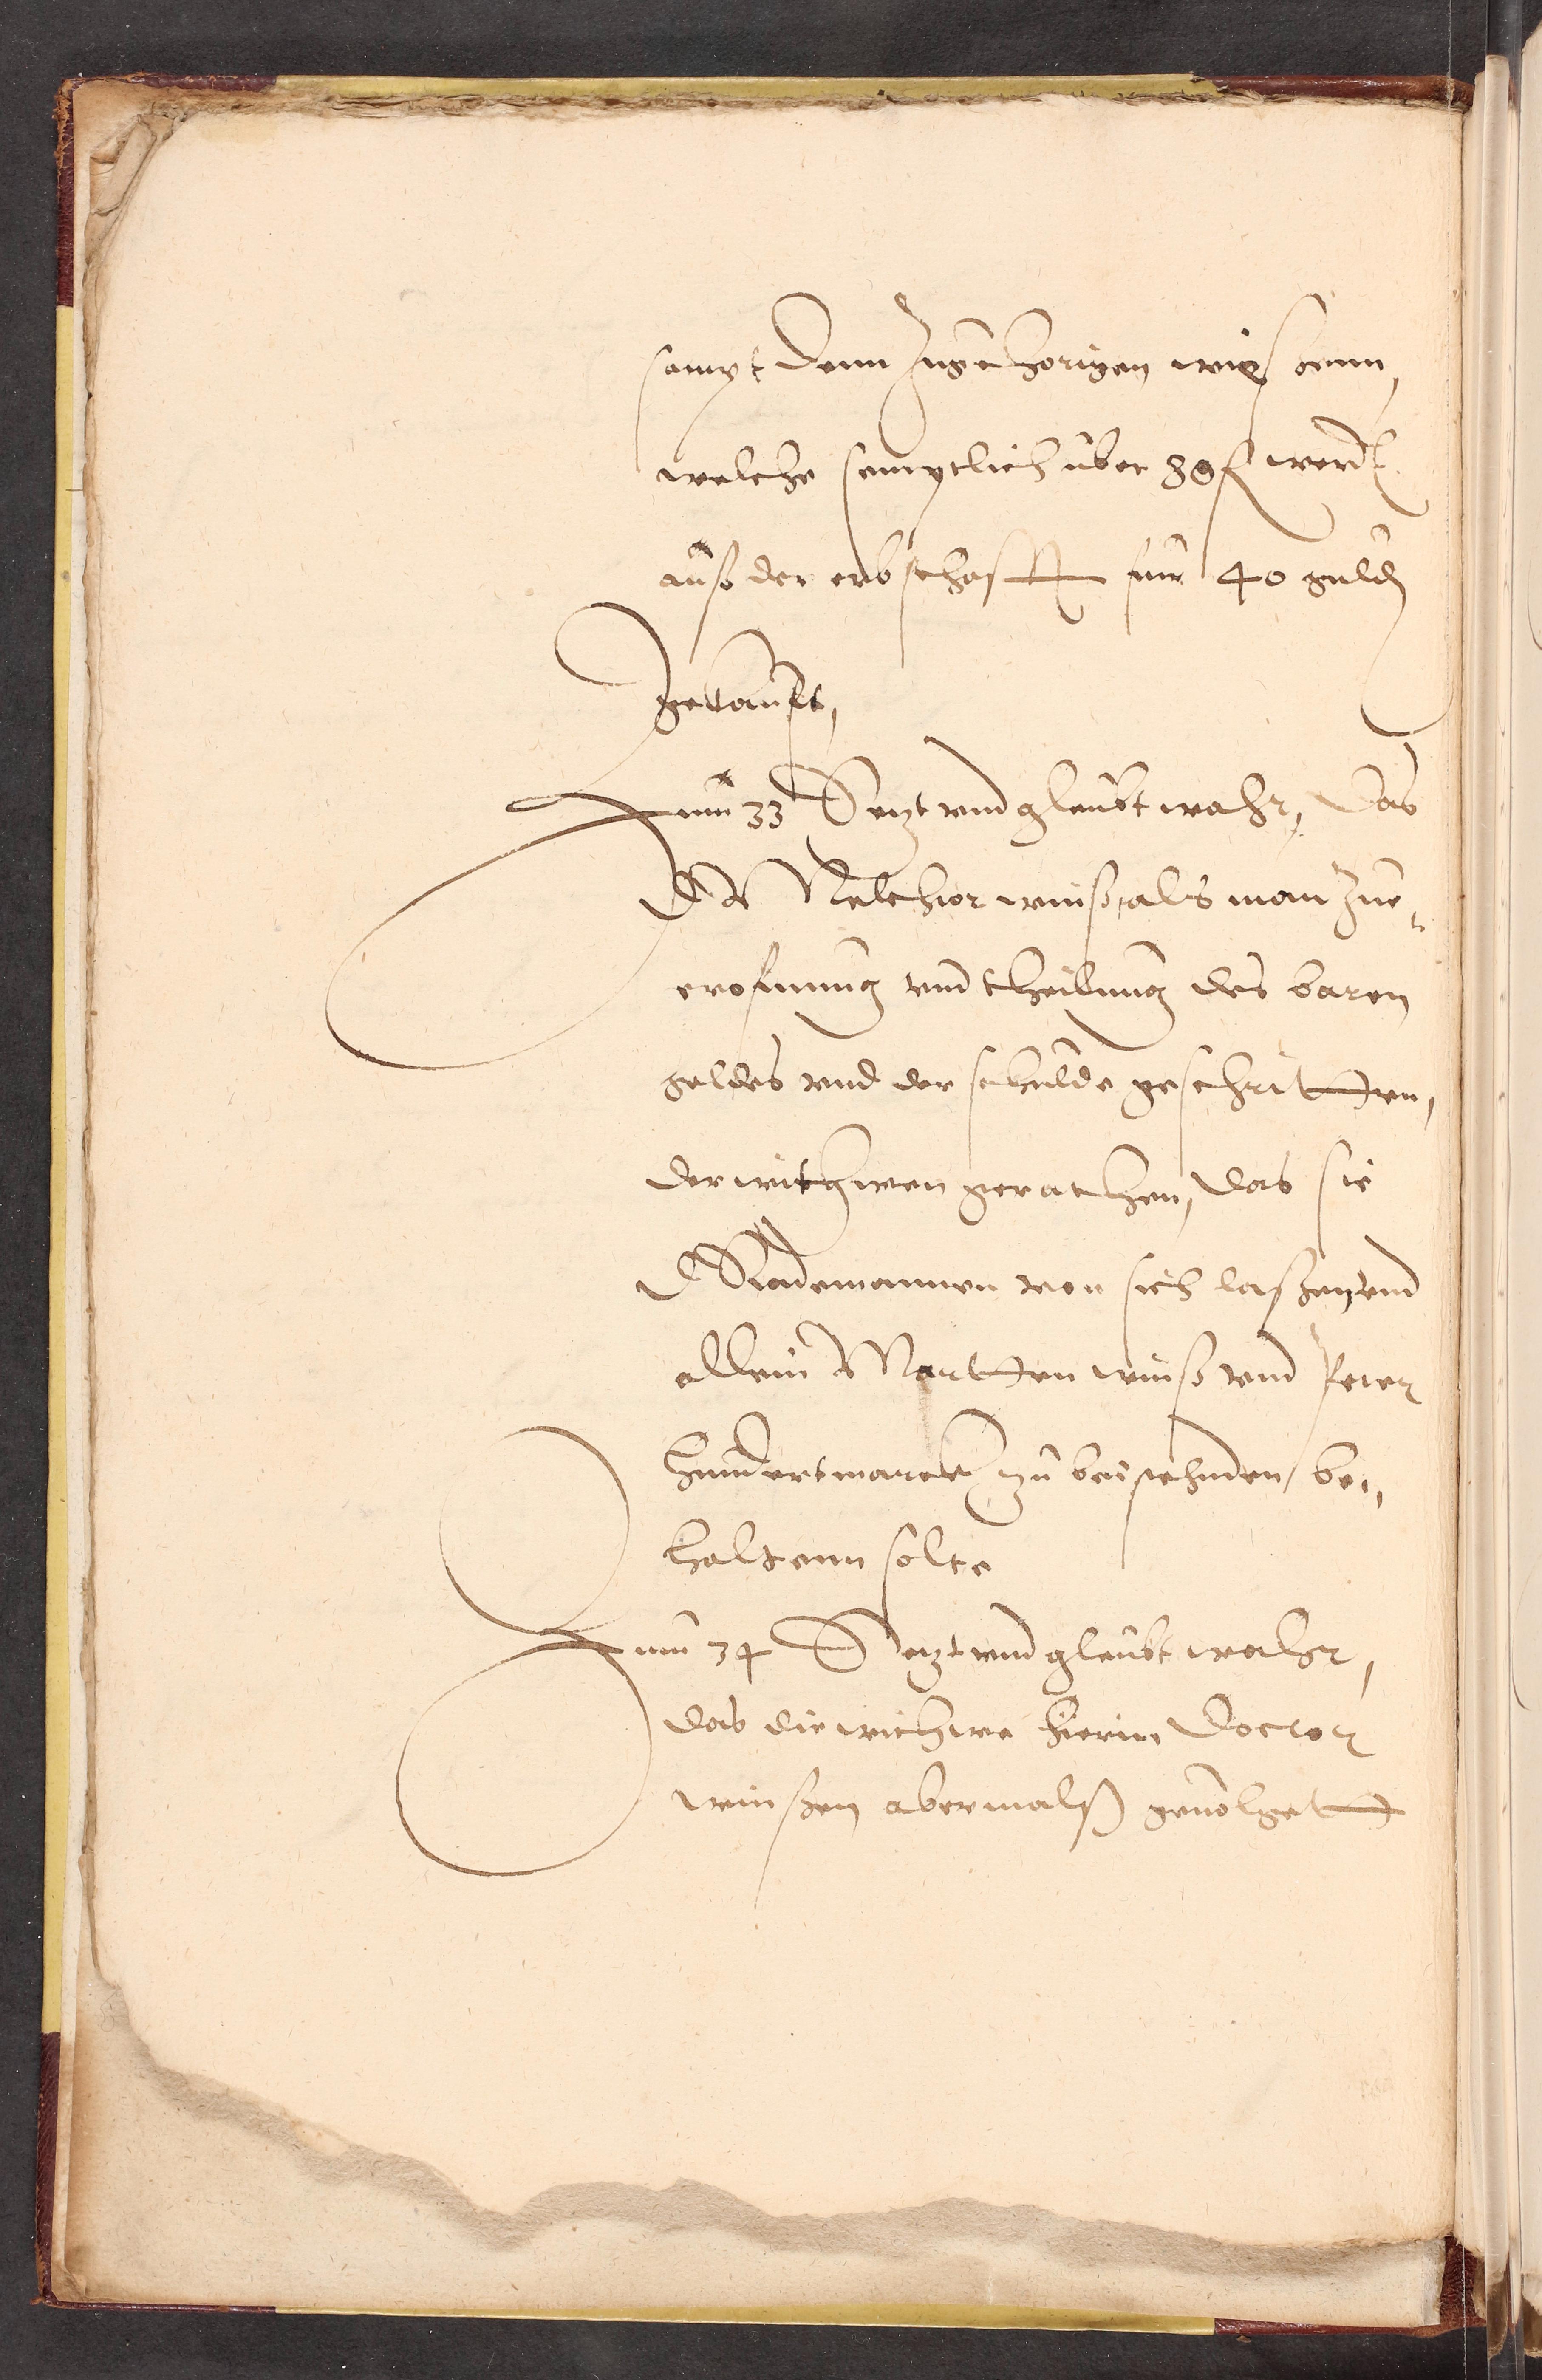 sampt denn Zugehorigen wiesenn,
welche semptlich über 80 fl werdt
auß der erbschafft fur 40 guld
gekaufft,
Zum 33 Setzt vnd glaubt wahr, das
D Melchior winß, als man Zur
erofnung vnd theilung des baren
geldes vnd der schulde geschritten,
der withwen gerathen, das sie
D Rademannen von sich laßen, vnd
allein Martten winß vnd Peter
hundertmarck zu beistenden be¬
haltenn solte
Zum 34 Setzt vnd glaubt wahr,
das die withwe hierin Doctor
winßen abermalß geuolgett